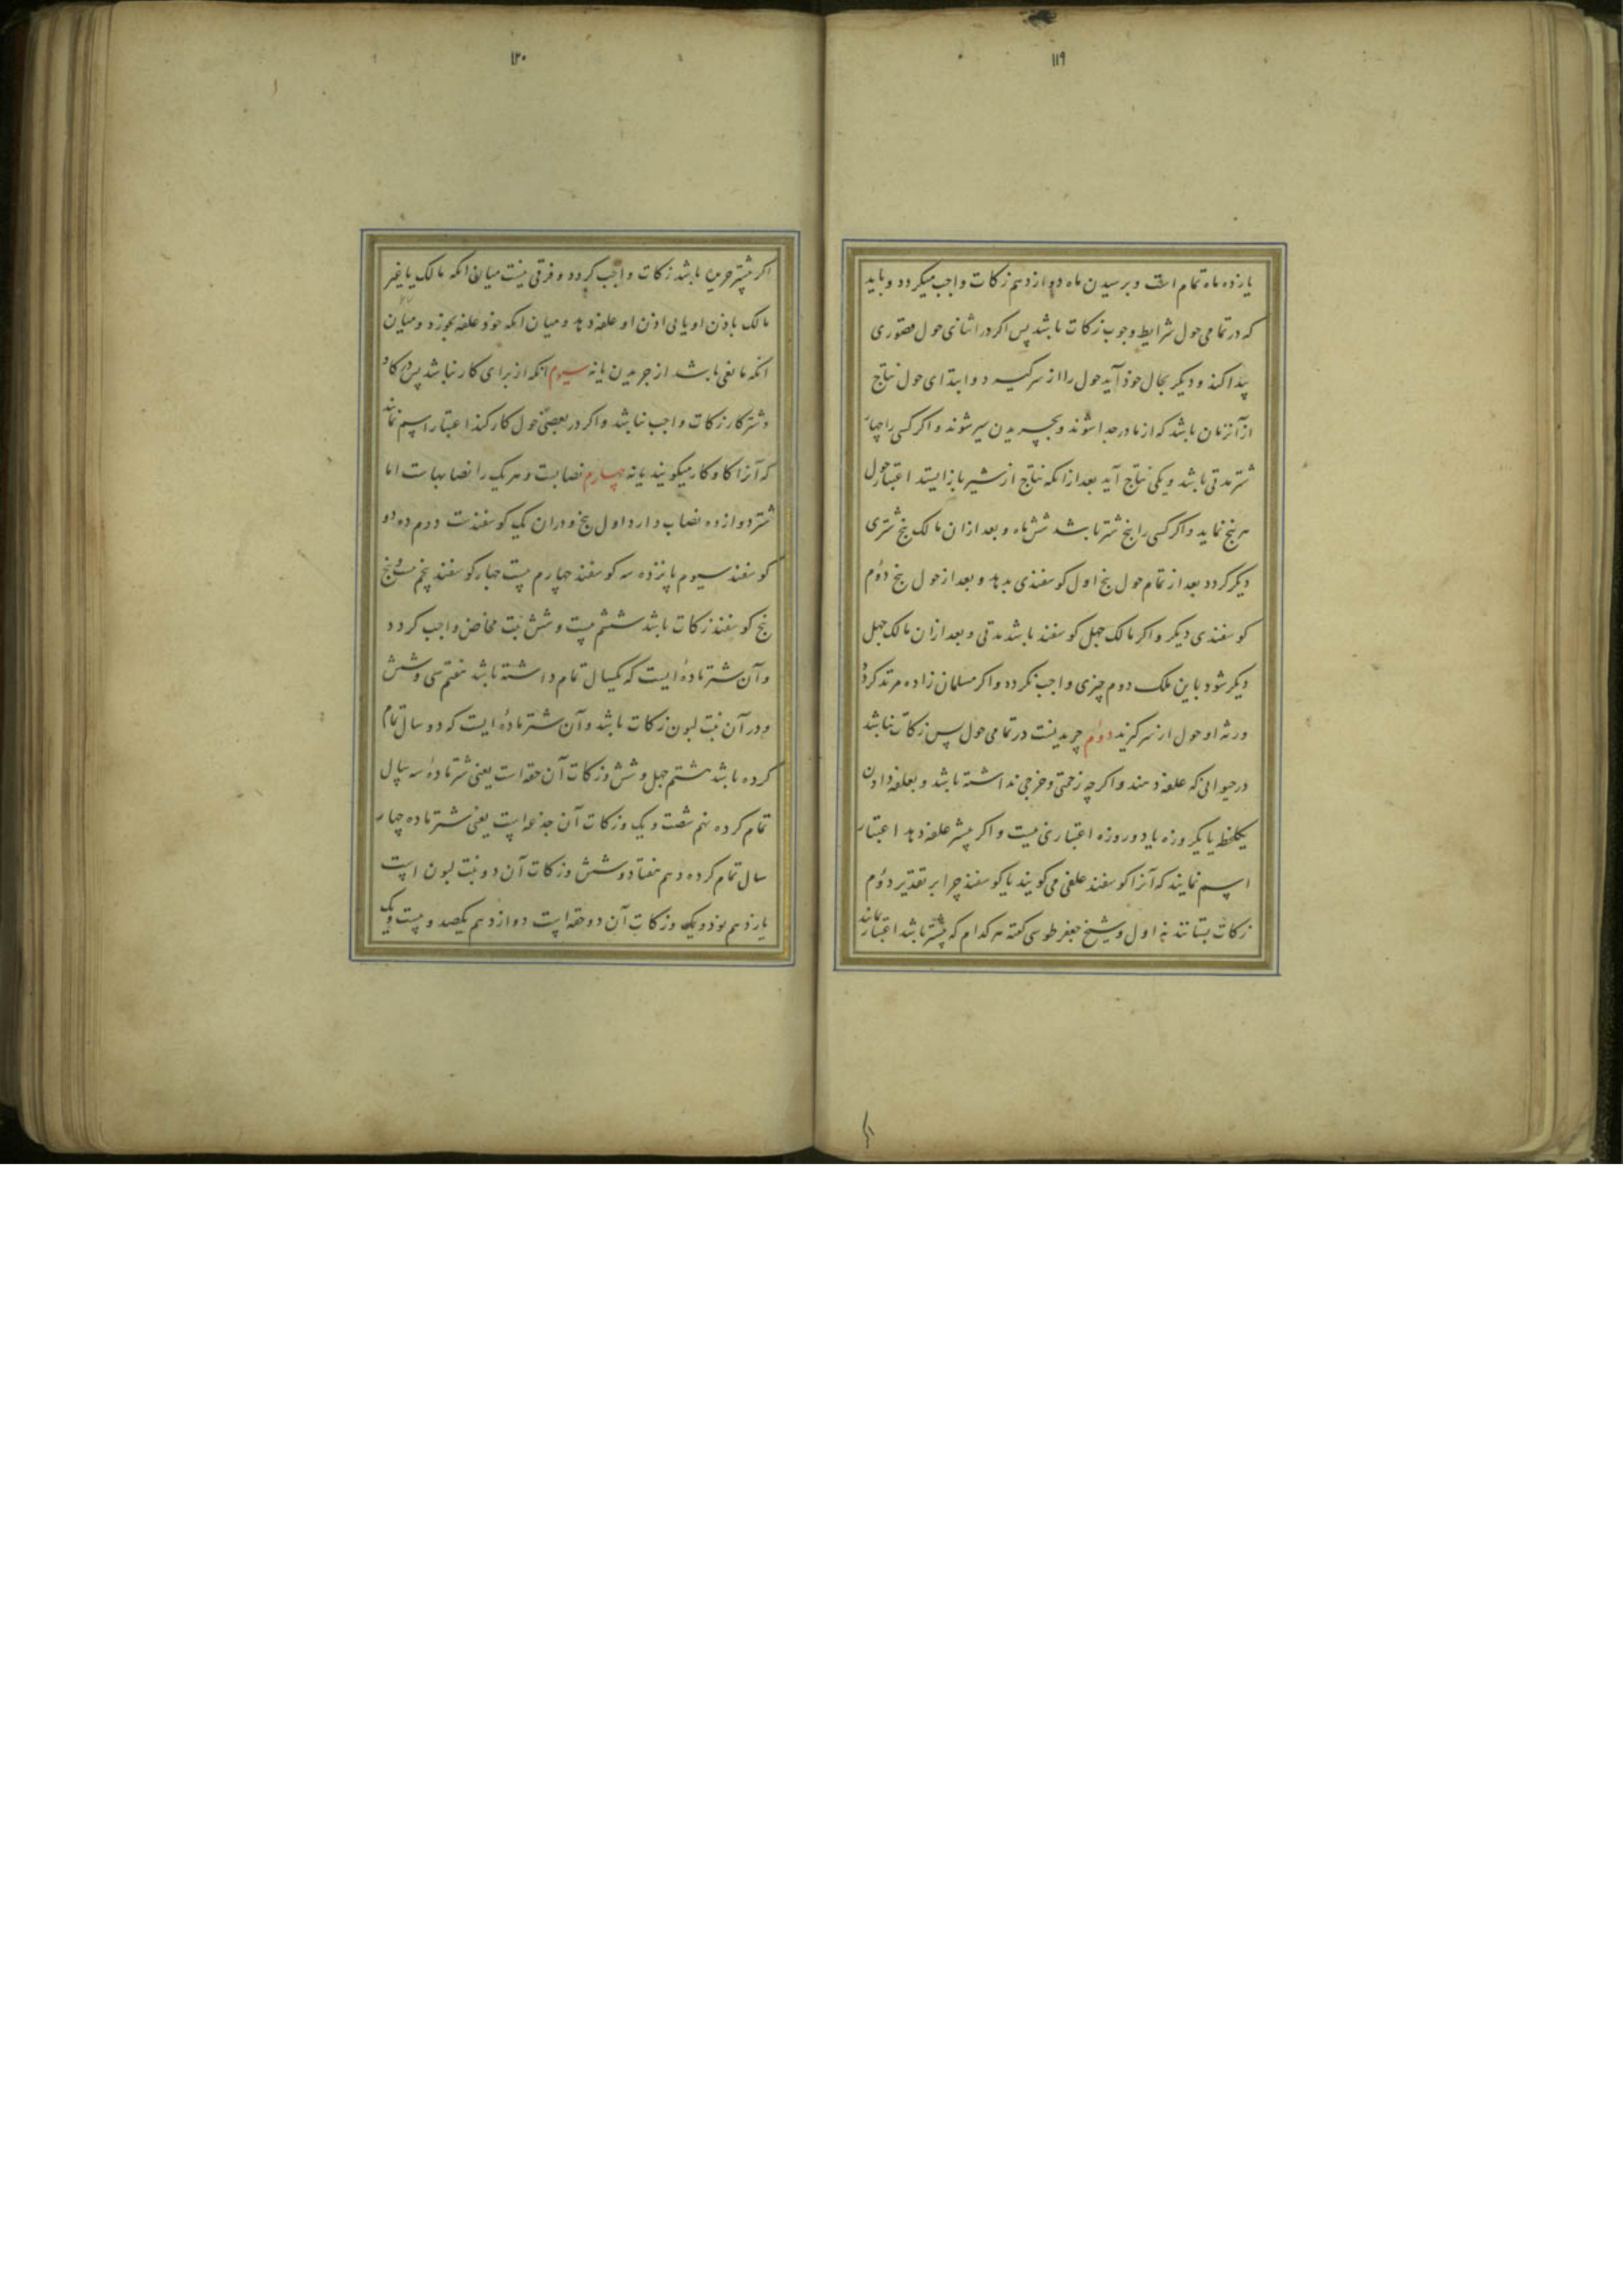 ١١٩
یازده ماه تمام است و برسیدن ماه دوازدهم زکات واجب میکردد و باید
که در تمامی حول شرایط وجوب زکات باشد پس اکر در اثنای حول قصوری
پیدا کند و دیکر بحال خوذ آید حول را از سر کیرد و ابتدای حول نتاج
از آنزمان باشد که از مادر جدا شوند و بچریدن سیر شوند و اکر کسی را چهار
شتر مدتی باشد و یکی نتاج آید بعد از انکه نتاج از شیر باز ایستد اعتبار حول
هر پنج نماید و اکر کسی را پنج شتر باشد شش ماه و بعد از ان مالک پنج شتری
دیکر کردد بعد از تمام حول پنج اول کوسفندی بدهد و بعد از حول پنج دوم
کوسفندی دیکر و اکر مالک چهل کوسفند باشد مدتی و بعد از ان مالک چهل
دیکر شود باین ملک دوم چیزی واجب نکردد و اکر مسلمان زاده مرتد کردد
ورثه او حول از سر کیرند دوم چریدنست در تمامی حول پس زکات نباشد
در حیوانی که علفه دهند و اکر چه زحمتی و خرجی نداشته باشد و بعلفه دادن
یکلحظه یا یکروزه یا دو روزه اعتباری نیست و اکر بیشتر علفه دهد اعتبار
اسم نمایند که آنرا کوسفند علفی می کویند یا کوسفند چرا بر تقدیر دوم
زکات بستانند نه اول و شیخ جعفر طوسی کفته هر کدام که بیشتر باشد اعتبار نمایند
١٢٠
اکر بیشتر چریدن باشد زکات واجب کردد و فرقی نیست میان انکه مالک یا غیر
مالک باذن او یا بی اذن او علفه دهد و میان انکه خوذ علفه بخورد و میان
انکه مانعی باشد از چریدن یا نه سیوم انکه از برای کار نباشد پس در کاو
و شتر کار زکات واجب نباشد و اکر در بعضی حول کار کند اعتبار اسم نمایند
که آنرا کاو کار میکویند یا نه چهارم نصابست و هر یک را نصابهاست اما
شتر دوازده نصاب دارد اول پنج و در ان یک کوسفندست دوم ده دو
کوسفند سیوم پانزده سه کوسفند چهارم بیست چهار کوسفند پنجم بیست و پنج
پنج کوسفند زکات باشد ششم بیست و شش بنت مخاض واجب کردد
و آن شتر مادهٔ ایست که یکسال تمام داشته باشد هفتم سی و شش
و در آن بنت لبون زکات باشد و آن شتر مادهٔ ایست که دو سال تمام
کرده باشد هشتم چهل و شش و زکات آن حقه است یعنی شتر مادهٔ سه سال
تمام کرده نهم شصت و یک و زکات آن جذعه است یعنی شتر ماده چهار
سال تمام کرده دهم هفتاد و شش و زکات آن دو بنت لبون است
یازدهم نوذ و یک و زکات آن دو حقه است دوازدهم یکصد و بیست و یک